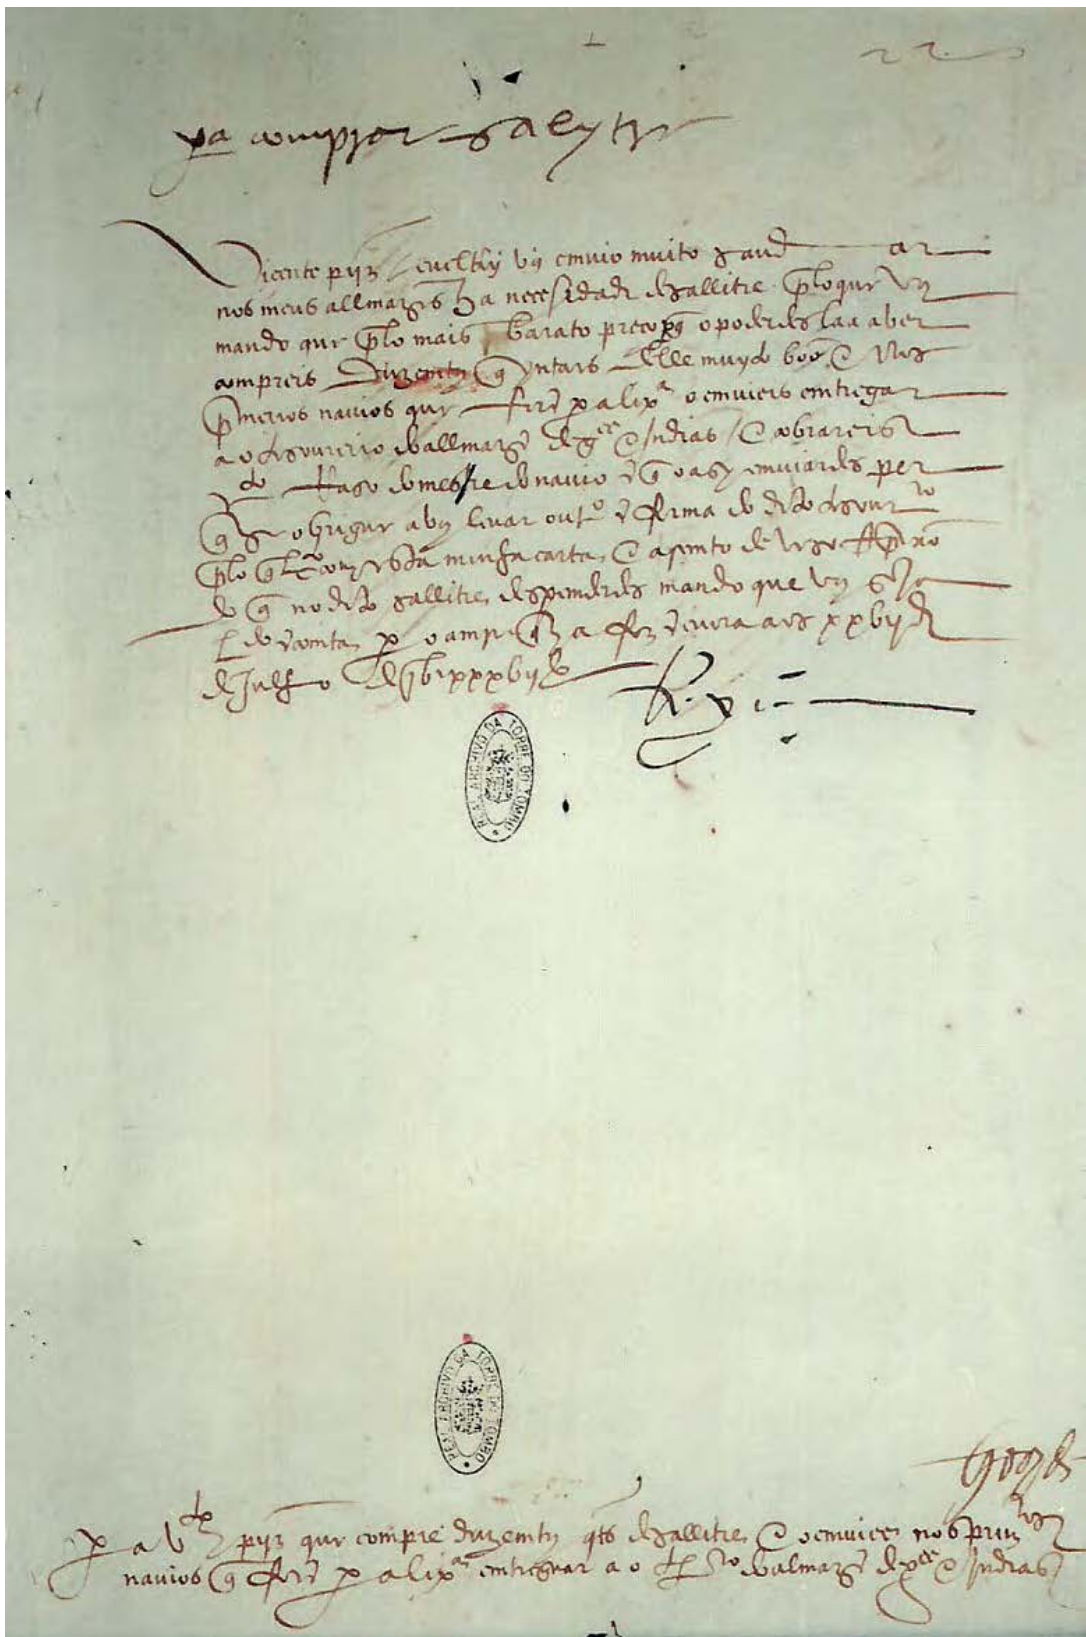 pa comprar salytre
Vicente piz eu el Rey vos emvio muito saud ar
nos meus allmazẽs ha necesidade de sallitre pelo que vos
mando que pelo mais barato preco que o poderdes laa aber
compreis duzentos quyntais delle muyto boo e nos
primeiros navios que forẽ pa lixa o emvieis emtregar
ao tesoureiro do allmazẽ de gee e Indias e cobrareis
do mestre do navio ẽ que o asy emviardes per
que se obrigue a vos levar outro ẽ forma do dito tesouro
pelo qual cō esta minha carta e asemto de
do que no dito sallitre despemderdes mando que vos seja
levado ẽ conta a fez ẽ evora aos xxbij dias
de Julho de bcxxxbij
Rey
REAL ARCHIVO DA TORRE DO TOMBO
REAL ARCHIVO DA TORRE DO TOMBO
pa Vte piz que compre duzentos qtes de sallitre e o emvie nos primros
navios que forẽ pa lixa emtregar ao tro do almazẽ de gee e Indias